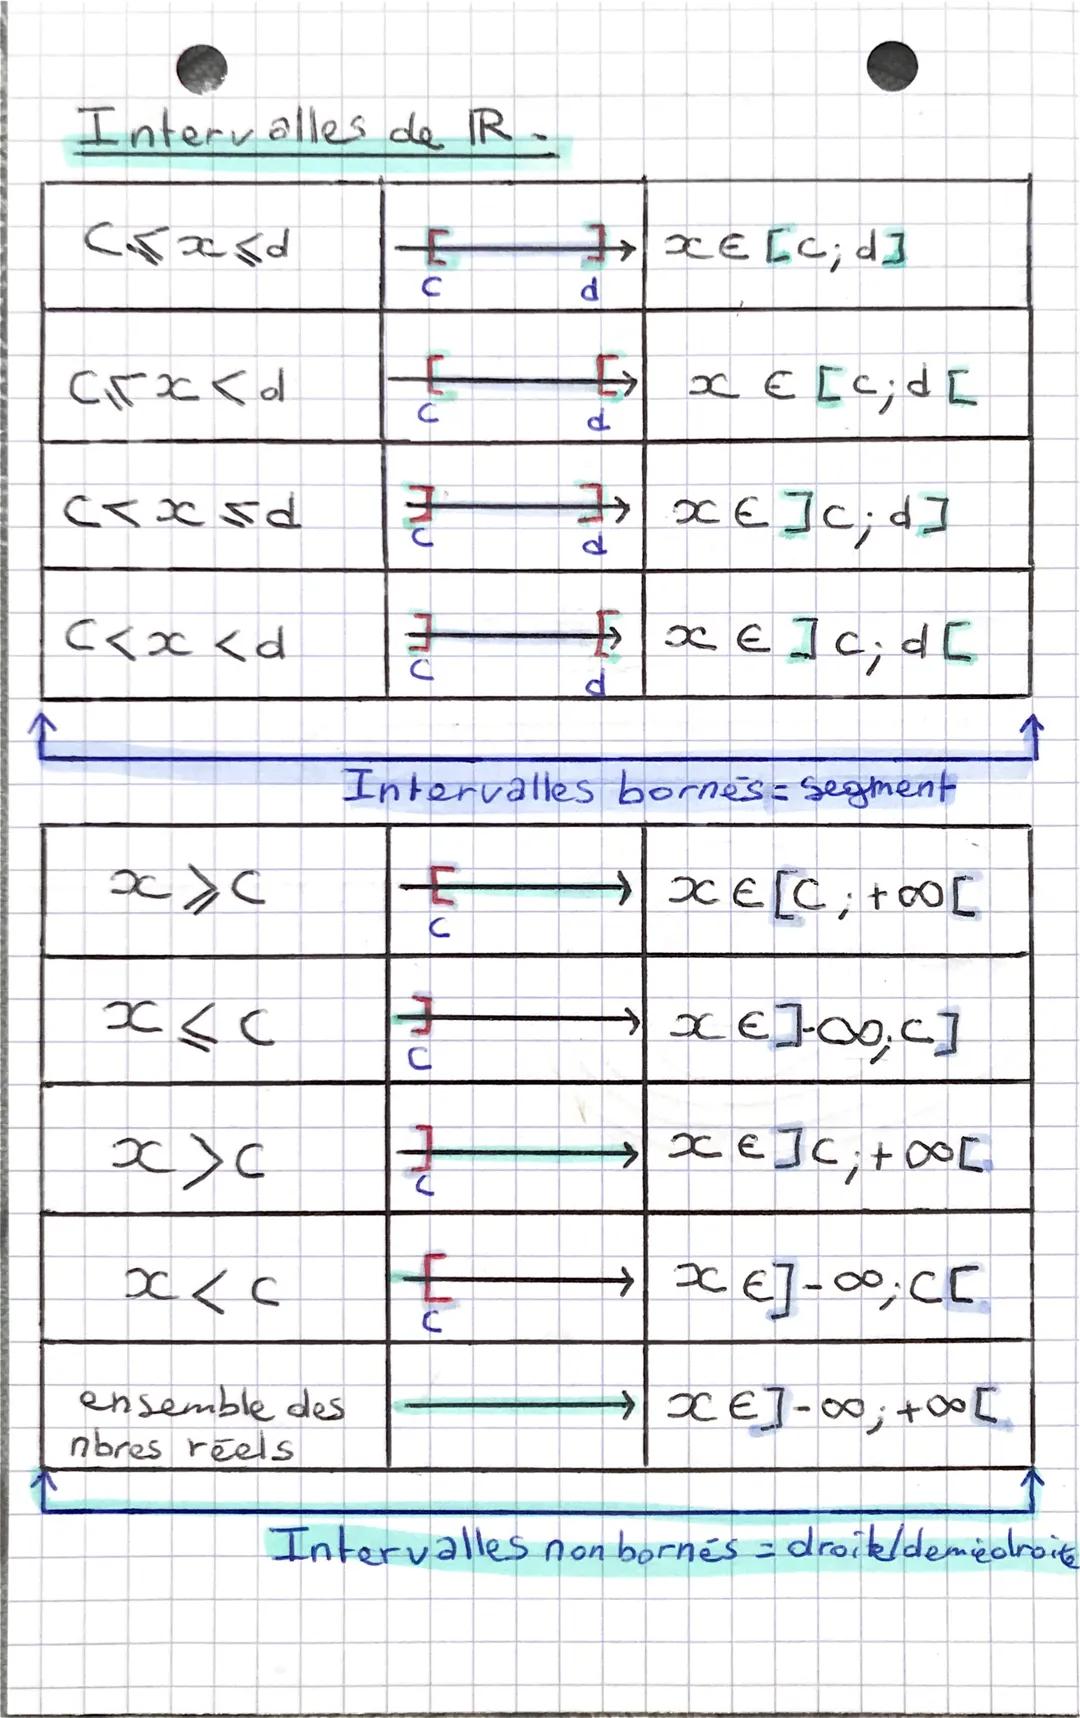 Intervalles de ℝ.
C ⩽ x ⩽ d [ ] x ∈ [c; d]
c d
C ⩽ x < d [ [ x ∈ [c; d[
c d
C < x ⩽ d ] ] x ∈ ]c; d]
c d
C < x < d ] [ x ∈ ]c; d[
c d
Intervalles bornés = segment
x ⩾ C [ x ∈ [C; +∞[
c
x ⩽ C ] x ∈ ]-∞; C]
c
x > C ] x ∈ ]C; +∞[
c
x < C [ x ∈ ]-∞; C[
c
ensemble des x ∈ ]-∞; +∞[
nbres réels
Intervalles non bornés = droite/demiedroite